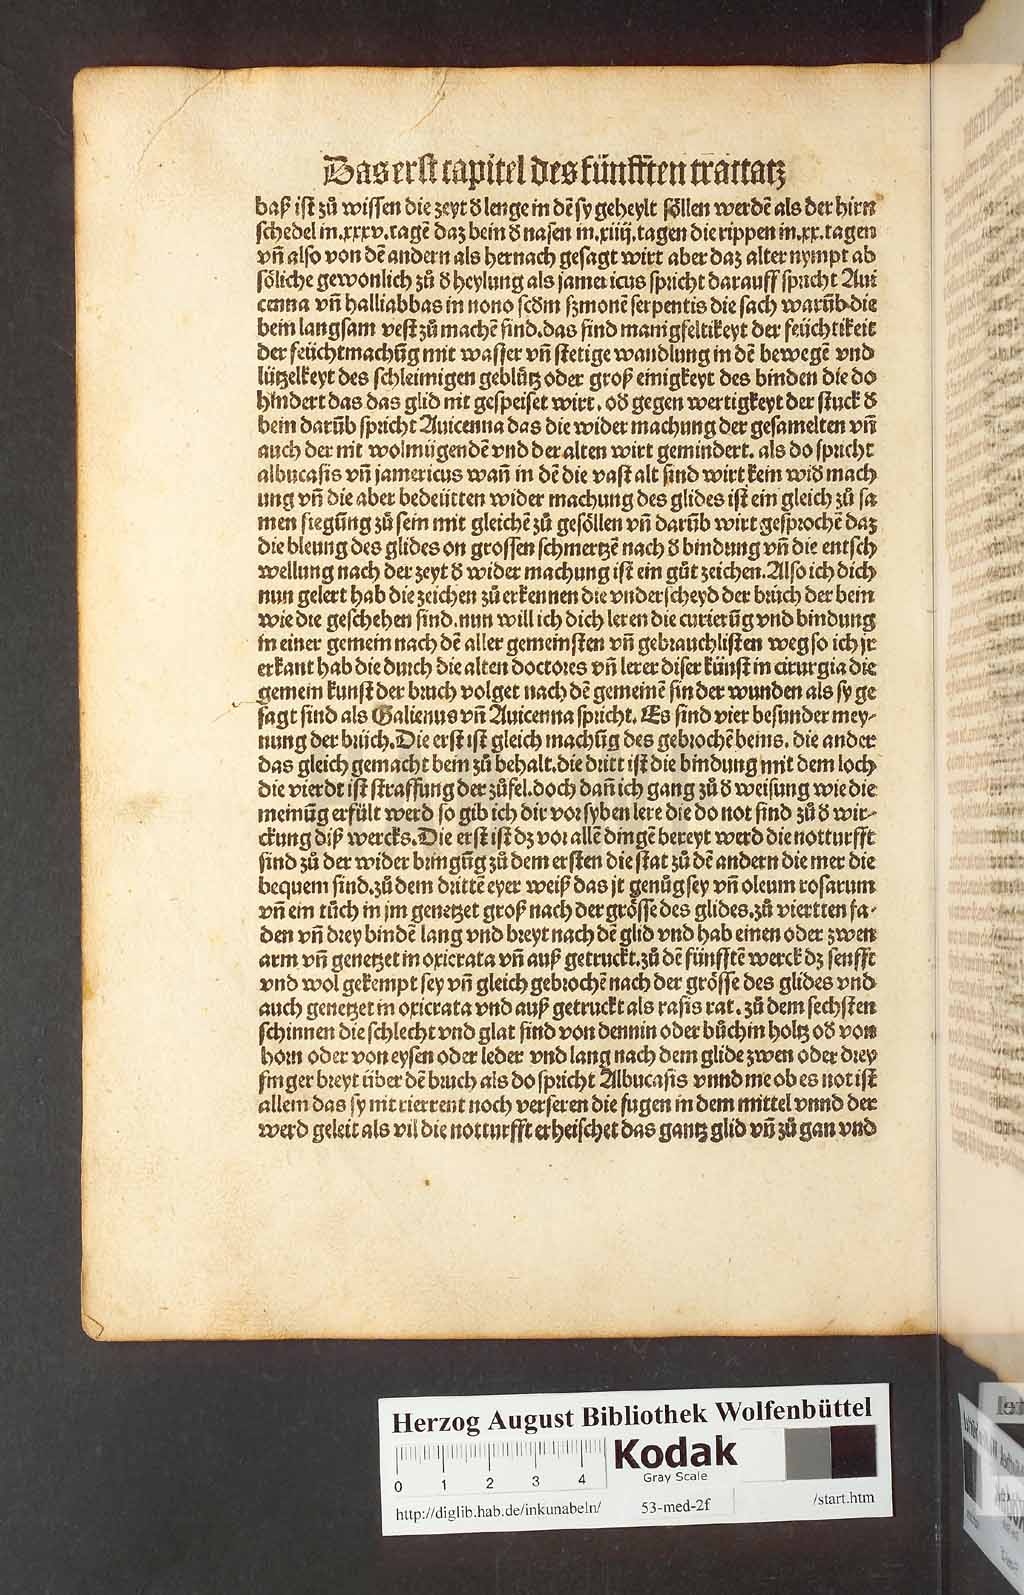 Das erst capitel des fünfften tractatz
baß ist zů wissen die zeyt d lenge in dē sy geheylt söllen werdē als der hirn
schedel in.xxxv.tagē daz bein d nasen in.xiiij.tagen die rippen in.xx.tagen
vn̄ also von dē andern als hernach gesagt wirt aber daz alter nympt ab
söliche gewonlich zů d heylung als jamericus spricht darauff spricht Aui
cenna vn̄ halliabbas in nono scd̄m ẜmonē serpentis die sach warūb die
bein langsam vest zů machē sind.das sind manigfeltikeyt der feüchtikeit
der feüchtmachūg mit wasser vn̄ stetige wandlung in dē bewegē vnd
lützelkeyt des schleimigen geblůtz oder groß einigkeyt des binden die do
hindert das das glid nit gespeiset wirt. od gegen wertigkeyt der stuck d
bein darūb spricht Auicenna das die wider machung der gesamelten vn̄
auch der nit wolmügendē vnd der alten wirt gemindert. als do spricht
albucasis vn̄ jamericus wan̄ in dē die vast alt sind wirt kein wid mach
ung vn̄ die aber bedeütten wider machung des glides ist ein gleich zů sa
men fiegūng zů sein mit gleichē zů gesöllen vn̄ darūb wirt gesprochē daz
die bleung des glides on grossen schmertzē nach d bindung vn̄ die entsch
wellung nach der zeyt d wider machung ist ein gůt zeichen.Also ich dich
nun gelert hab die zeichen zů erkennen die vnderscheyd der brüch der bein
wie die geschehen sind.nun will ich dich leren die curierūg vnd bindung
in einer gemein nach dē aller gemeinsten vn̄ gebrauchlisten weg so ich jr
erkant hab die durch die alten doctores vn̄ lerer diser künst in cirurgia die
gemein kunst der bruch volget nach dē gemeinē sin der wunden als sy ge
sagt sind als Galienus vn̄ Auicenna spricht. Es sind vier besunder mey-
nung der brüch.Die erst ist gleich machūg des gebrochē beins. die ander
das gleich gemacht bein zů behalt.die dritt ist die bindung mit dem loch
die vierdt ist straffung der zůfel.doch dan̄ ich gang zů d weisung wie die
meinūg erfült werd so gib ich dir vor syben lere die do not sind zů d wir-
ckung diß wercks.Die erst ist dz vor allē dingē bereyt werd die notturfft
sind zů der wider bringūg zů dem ersten die stat zů dē andern die mer die
bequem sind.zů dem drittē eyer weiß das jr genůg sey vn̄ oleum rosarum
vn̄ ein tůch in jm genetzet groß nach der grösse des glides.zů viertten fa-
den vn̄ drey bindē lang vnd breyt nach dē glid vnd hab einen oder zwen
arm vn̄ genetzet in oxicrata vn̄ auß getruckt.zů dē fünfftē werck dz senfft
vnd wol gekempt sey vn̄ gleich gebrochē nach der grösse des glides vnd
auch genetzet in oxicrata vnd auß getruckt als rasis rat. zů dem sechsten
schinnen die schlecht vnd glat sind von dennin oder bůchin holtz od von
horn oder von eysen oder leder vnd lang nach dem glide zwen oder drey
finger breyt über dē bruch als do spricht Albucasis vnnd me ob es not ist
allein das sy nit rierrent noch verseren die fugen in dem mittel vnnd der
werd geleit als vil die notturfft erheischet das gantz glid vn̄ zů gan vnd
Herzog August Bibliothek Wolfenbüttel
0 1 2 3 4
Kodak
Gray Scale
http://diglib.hab.de/inkunabeln/ 53-med-2f /start.htm